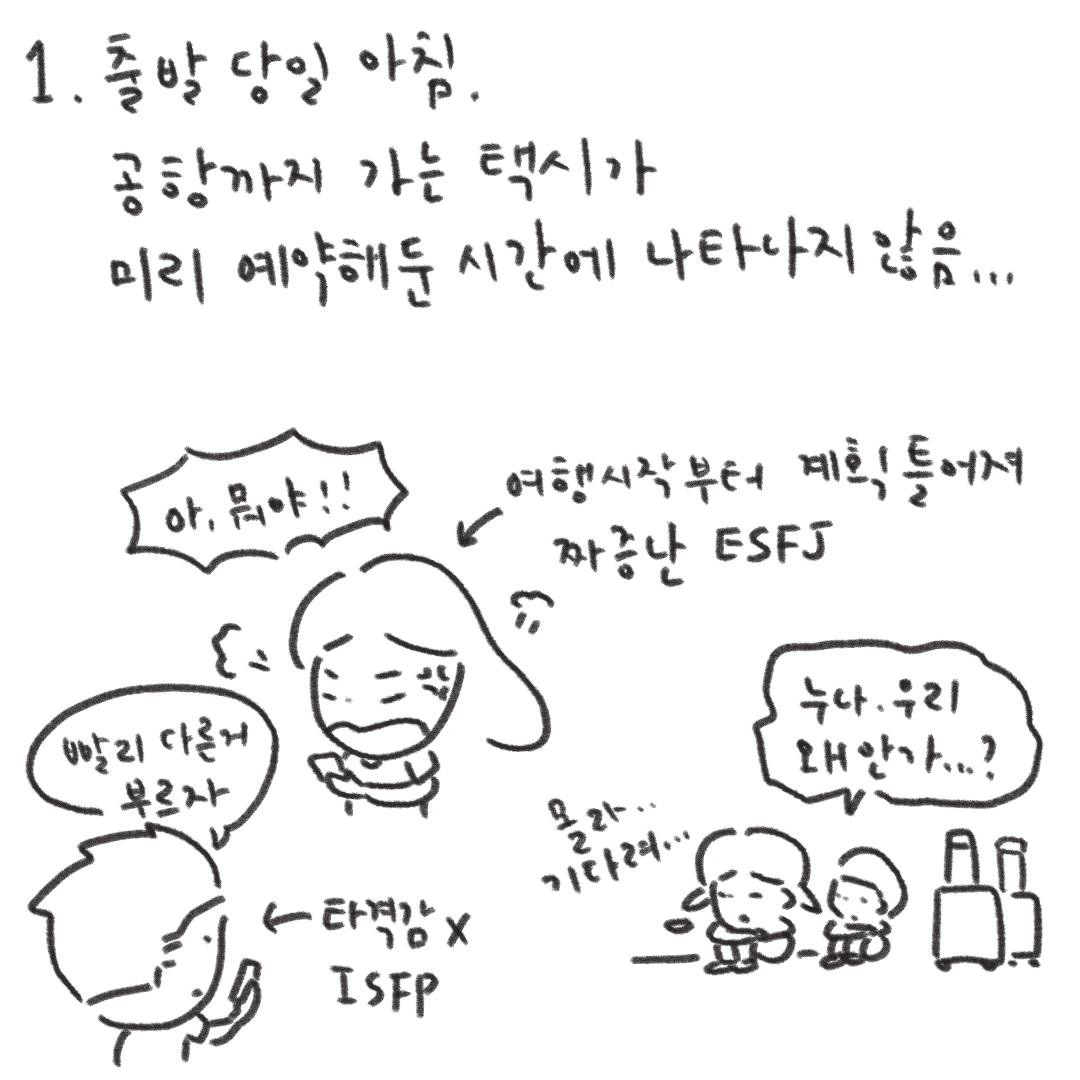 1. 출발 당일 아침.
공항까지 가는 택시가
미리 예약해둔 시간에 나타나지 않음...
아, 뭐야!!
여행시작부터 계획 틀어져
짜증난 ESFJ
빨리 다른거
부르자
타격감 X
ISFP
누나. 우리
왜 안가...?
몰라..
기다려...